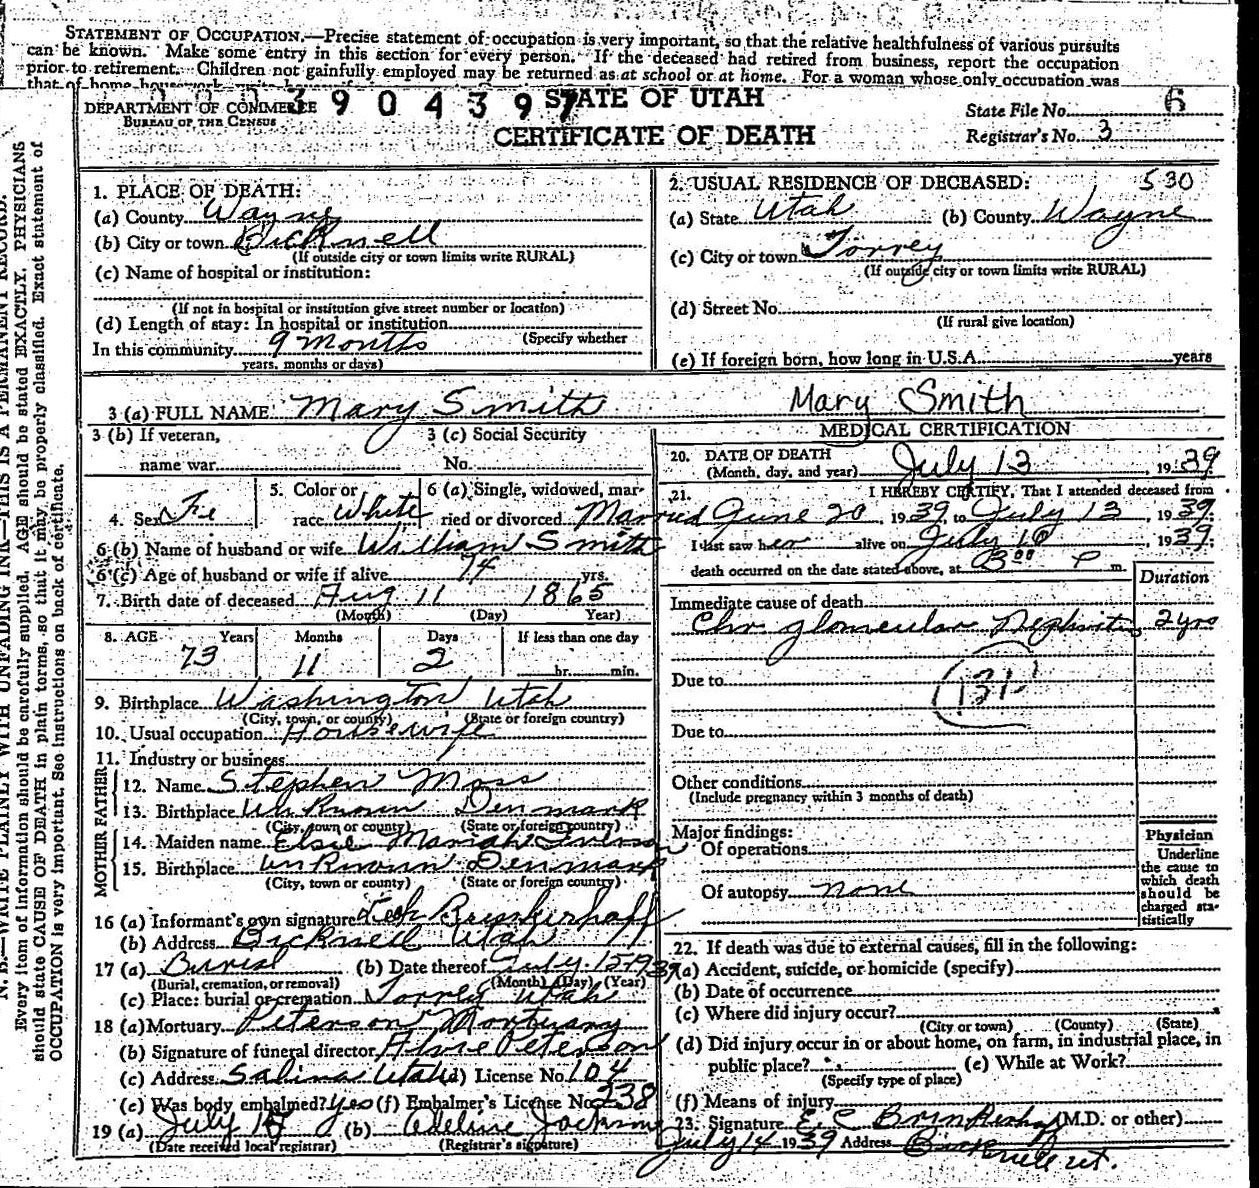 STATEMENT OF OCCUPATION.—Precise statement of occupation is very important, so that the relative healthfulness of various pursuits
can be known. Make some entry in this section for every person. If the deceased had retired from business, report the occupation
prior to retirement. Children not gainfully employed may be returned as at school or at home. For a woman whose only occupation was
that of home housework
DEPARTMENT OF COMMERCE
BUREAU OF THE CENSUS
3904397
STATE OF UTAH
CERTIFICATE OF DEATH
State File No. 6
Registrar's No. 3
N. B.—WRITE PLAINLY WITH UNFADING INK—THIS IS A PERMANENT RECORD.
Every item of information should be carefully supplied. AGE should be stated EXACTLY. PHYSICIANS
should state CAUSE OF DEATH in plain terms, so that it may be properly classified. Exact statement of
OCCUPATION is very important. See instructions on back of certificate.
1. PLACE OF DEATH:
(a) County Wayne
(b) City or town Bicknell
(If outside city or town limits write RURAL)
(c) Name of hospital or institution:
(If not in hospital or institution give street number or location)
(d) Length of stay: In hospital or institution
(Specify whether
In this community 9 Months
years, months or days)
2. USUAL RESIDENCE OF DECEASED: 530
(a) State Utah (b) County Wayne
(c) City or town Torrey
(If outside city or town limits write RURAL)
(d) Street No.
(If rural give location)
(e) If foreign born, how long in U.S.A. years
3 (a) FULL NAME Mary Smith Mary Smith
3 (b) If veteran, 3 (c) Social Security
name war No.
4. Sex Fe 5. Color or race White 6 (a) Single, widowed, married or divorced Married
6 (b) Name of husband or wife William Smith
6 (c) Age of husband or wife if alive 74 yrs.
7. Birth date of deceased Aug 11 1865
(Month) (Day) Year)
8. AGE Years Months Days If less than one day
73 11 2 hr. min.
9. Birthplace Washington Utah
(City, town, or county) (State or foreign country)
10. Usual occupation Housewife
11. Industry or business
FATHER
12. Name Stephen Moss
13. Birthplace Unknown Denmark
(City, town or county) (State or foreign country)
MOTHER
14. Maiden name Elsie Mariah
15. Birthplace Unknown Denmark
(City, town or county) (State or foreign country)
16 (a) Informant's own signature Brinkerhoff
(b) Address Bicknell Utah
17 (a) Burial (b) Date thereof July 15 1939
(Burial, cremation, or removal) (Month) (Day) (Year)
(c) Place: burial or cremation Torrey Utah
18 (a) Mortuary Peterson Mortuary
(b) Signature of funeral director Alvie Peterson
(c) Address Salina Utah (d) License No. 104
(e) Was body embalmed? yes (f) Embalmer's License No. 238
19 (a) July 15 (b) Adeline Jackson
(Date received local registrar) (Registrar's signature)
MEDICAL CERTIFICATION
20. DATE OF DEATH
(Month, day, and year) July 13, 1939
21. I HEREBY CERTIFY, That I attended deceased from
June 20, 1939, to July 13, 1939.
I last saw her alive on July 10, 1939;
death occurred on the date stated above, at 3:00 P m.
Duration
Immediate cause of death
Chr glomerular Nephritis 2 yrs
Due to
(131)
Due to
Other conditions
(Include pregnancy within 3 months of death)
Major findings:
Of operations
Of autopsy none
Physician
Underline
the cause to
which death
should be
charged sta-
tistically
22. If death was due to external causes, fill in the following:
(a) Accident, suicide, or homicide (specify)
(b) Date of occurrence
(c) Where did injury occur?
(City or town) (County) (State)
(d) Did injury occur in or about home, on farm, in industrial place, in
public place? (e) While at Work?
(Specify type of place)
(f) Means of injury
23. Signature E. C. Brinkerhoff (M.D. or other)
July 14 1939 Address Bicknell Ut.